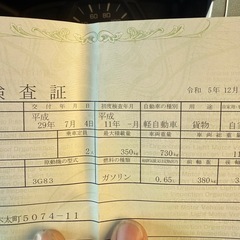 検査証
令和 5年12月
交付年月日 初度検査年月 自動車の種別 用途
平成 平成
29年 7月 4日 11年 -月 軽自動車 貨物 自家
乗車定員 最大積載量 車両重量
2人 350kg 730kg
原動機の型式 燃料の種類
3G83 ガソリン 0.65L 380
太町5074-11